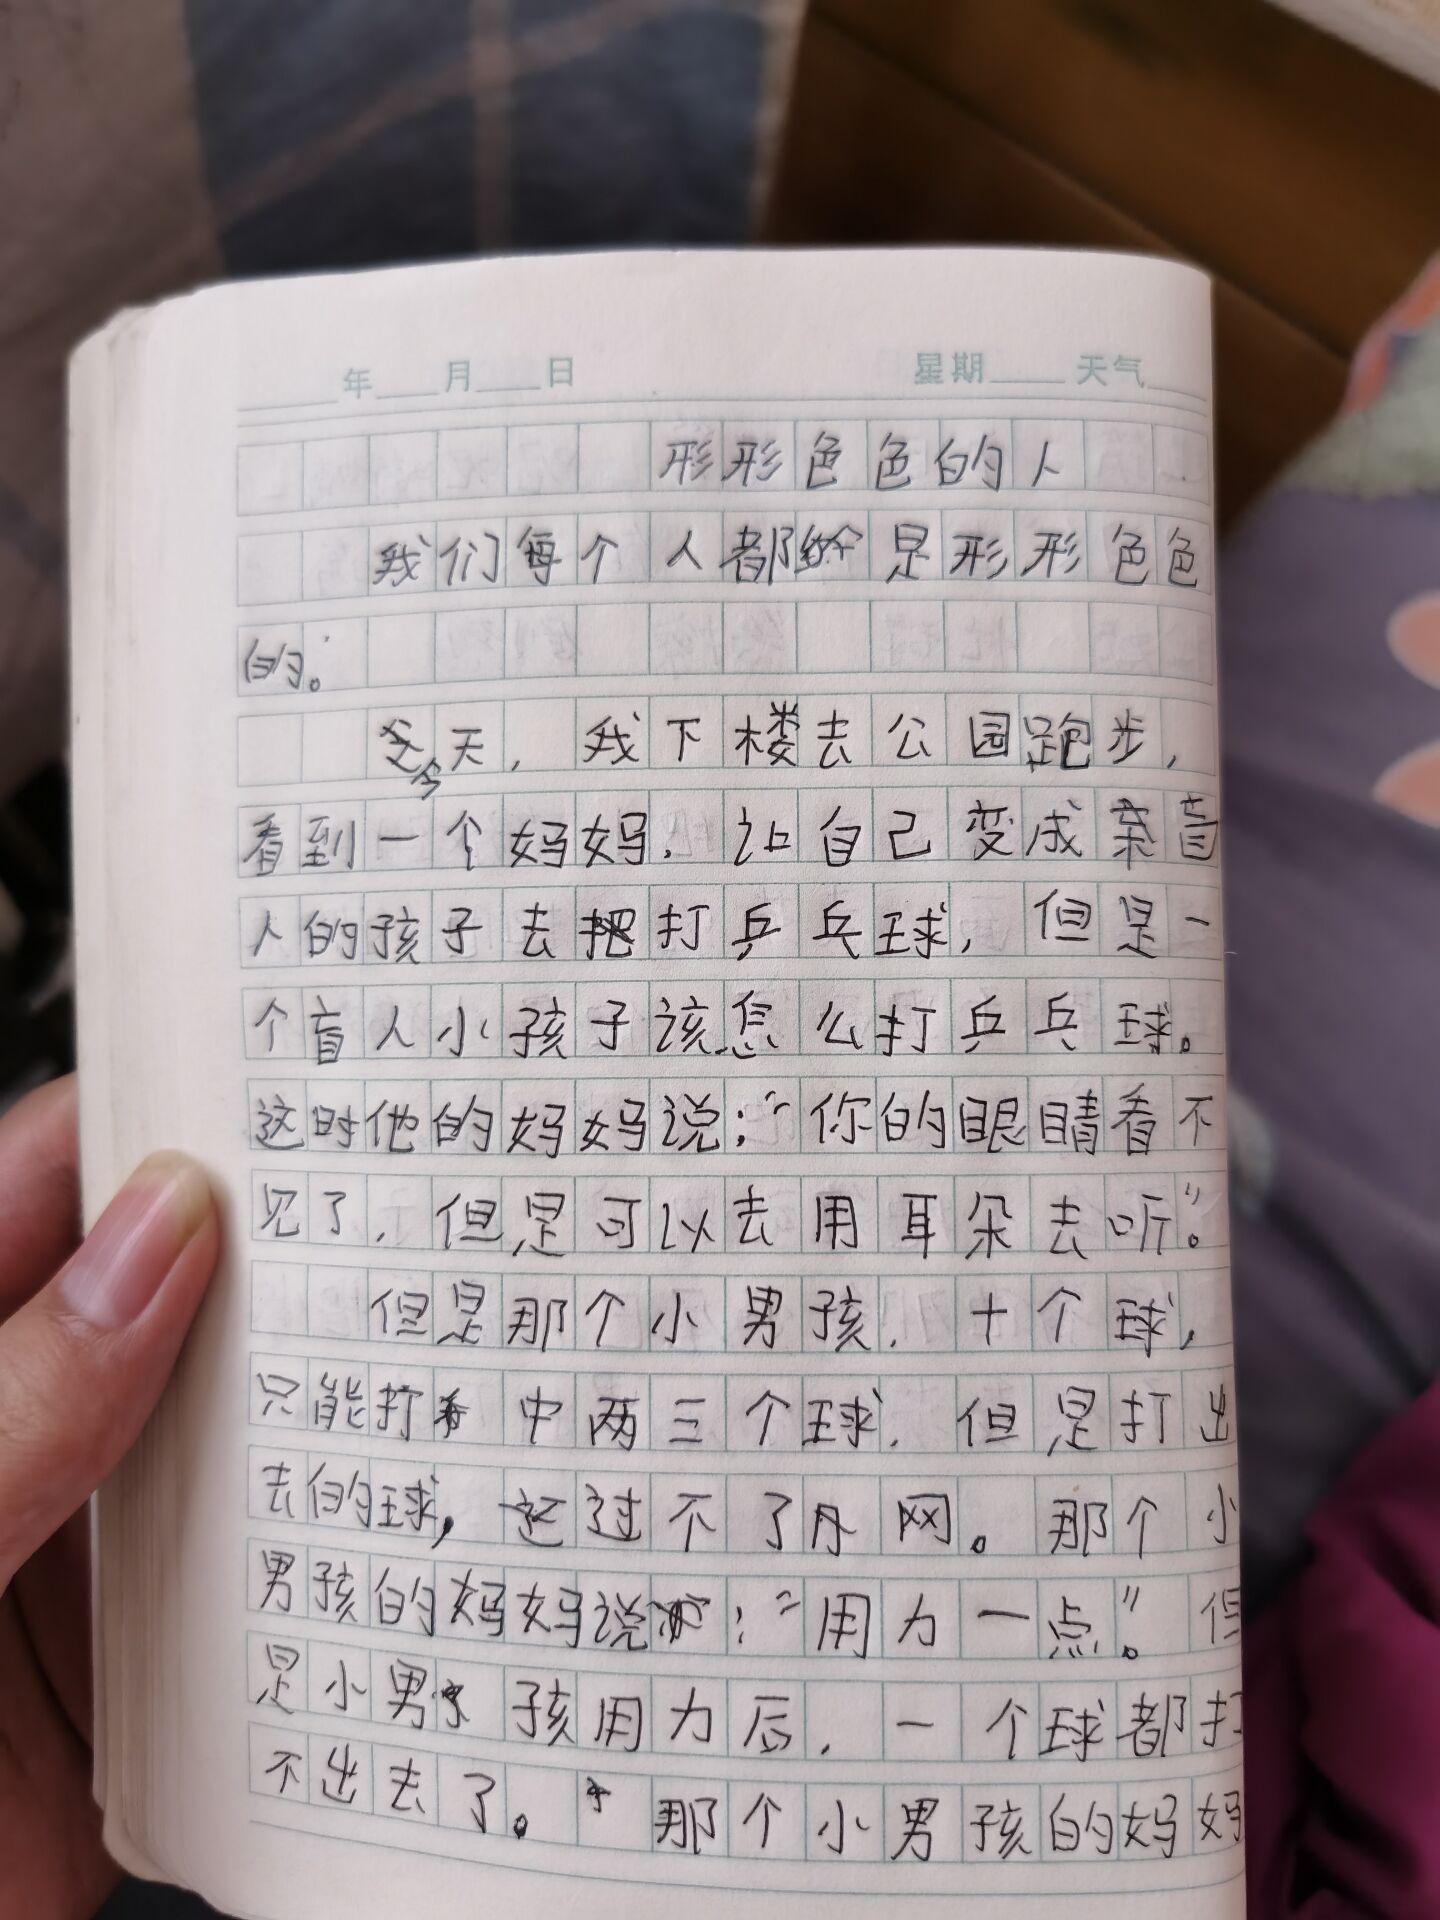 年 月 日 星期 天气
形形色色的人
我们每个人都是形形色色
的。
今天，我下楼去公园跑步，
看到一个妈妈，让自己变成盲
人的孩子去打乒乓球，但是一
个盲人小孩子该怎么打乒乓球。
这时他的妈妈说：“你的眼睛看不
见了，但是可以去用耳朵去听”。
但是那个小男孩，十个球，
只能打中两三个球，但是打出
去的球，还过不了网。那个小
男孩的妈妈说：“用力一点”。但
是小男孩用力后，一个球都打
不出去了。那个小男孩的妈妈